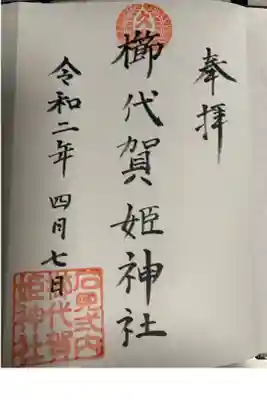 奉拝
櫛代賀姫神社
令和二年 四月七日
久
石見式内
櫛代賀
姫神社